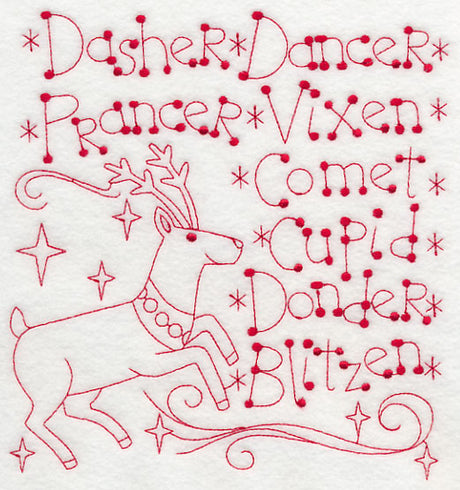 *Dasher*Dancer*
*Prancer*Vixen*
*Comet*
*Cupid*
*Donder*
*Blitzen*